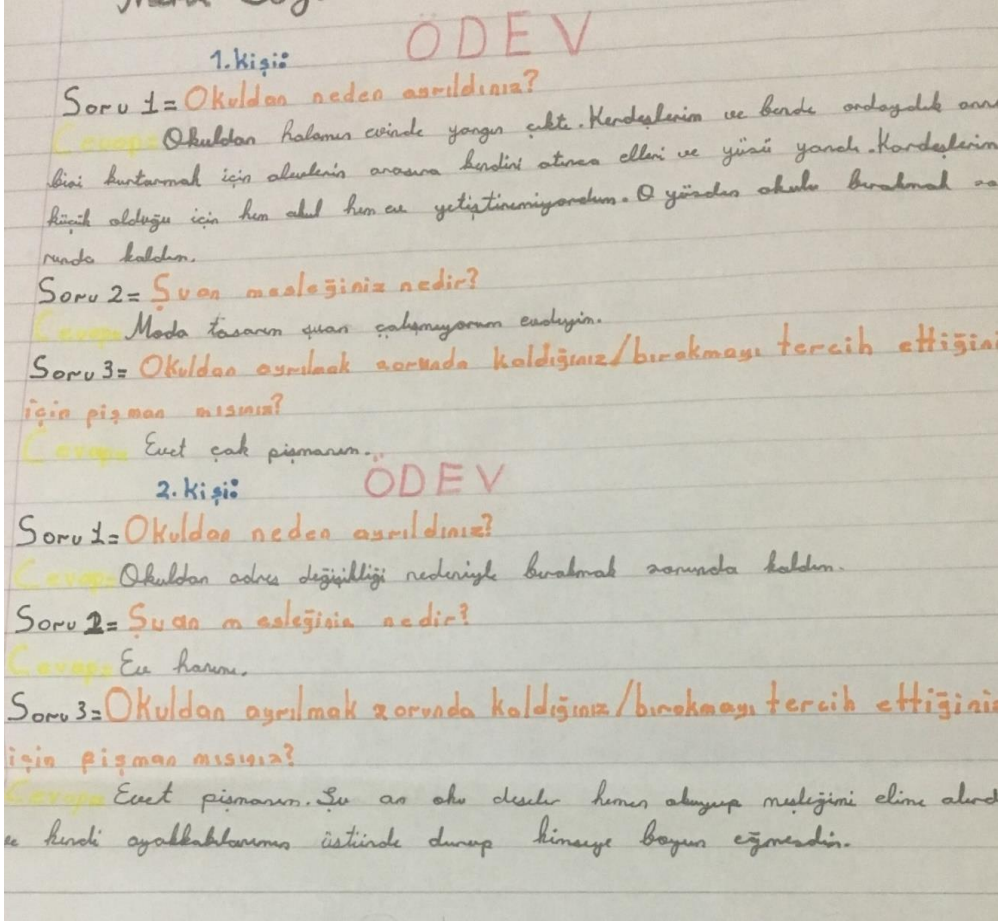 ÖDEV
1. kişi:
Soru 1= Okuldan neden ayrıldınız?
Cevap= Okuldan halamın evinde yangın çıktı. Kardeşlerim ve bende ordaydık ann
bizi kurtarmak için alevlerin arasına kendini atınca elleri ve yüzü yandı. Kardeşlerim
küçük olduğu için hem okul hem ev yetiştiremiyordum. O yüzden okulu bırakmak zo
runda kaldım.
Soru 2= Şuan mesleğiniz nedir?
Cevap= Moda tasarım şuan çalışmıyorum evdeyim.
Soru 3= Okuldan ayrılmak zorunda kaldığınız/bırakmayı tercih ettiğini
için pişman mısınız?
Cevap= Evet çok pişmanım.
2. kişi: ÖDEV
Soru 1= Okuldan neden ayrıldınız?
Cevap= Okuldan adres değişikliği nedeniyle bırakmak zorunda kaldım.
Soru 2= Şuan mesleğiniz nedir?
Cevap= Ev hanımı.
Soru 3= Okuldan ayrılmak zorunda kaldığınız/bırakmayı tercih ettiğiniz
için pişman mısınız?
Cevap= Evet pişmanım. Şu an oku deseler hemen okuyup mesleğimi elime alırd
ve kendi ayakkabılarımın üstünde durup kimseye boyun eğmezdim.